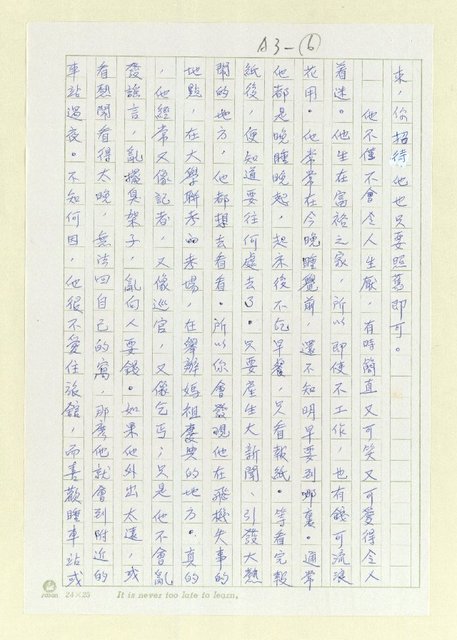 A3-(6)
來，你招待他也只要照舊即可。
他不僅不會令人生厭，有時簡直又可笑又可愛得令人
着迷。他生在富裕之家，所以即使不工作，也有錢可流浪
花用。他常常在今晚睡覺前，還不知明早要到哪裏。通常
他都是晚睡晚起，起來後不吃早餐，只看報紙。等看完報
紙後，便知道要往何處去了。只要產生大新聞、引發大熱
鬧的地方，他都想去看看。所以你會發現他在飛機失事的
地點，在大學聯考的考場，在舉辦媽祖慶典的地方。真的
，他經常又像記者，又像巡官，又像乞丐；只是他不會亂
發謠言，亂擺臭架子，亂向人要錢。如果他外出太遠，或
看熱鬧看得太晚，無法回自己的寓，那麼他就會到附近的
車站過夜。不知何因，他很不愛住旅館，而喜歡睡車站或
24×25
It is never too late to learn.